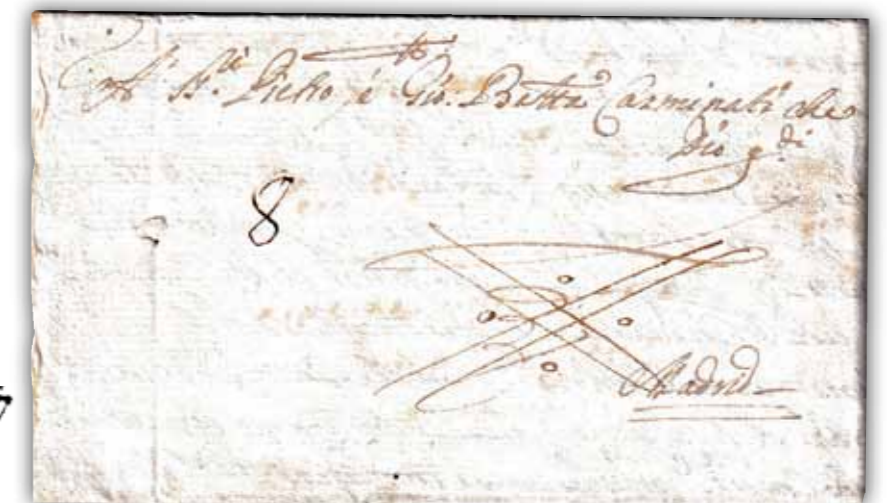 A' SS.ri Pietro é Gio. Batta Carminati che
Dio g.di
8
Madrid